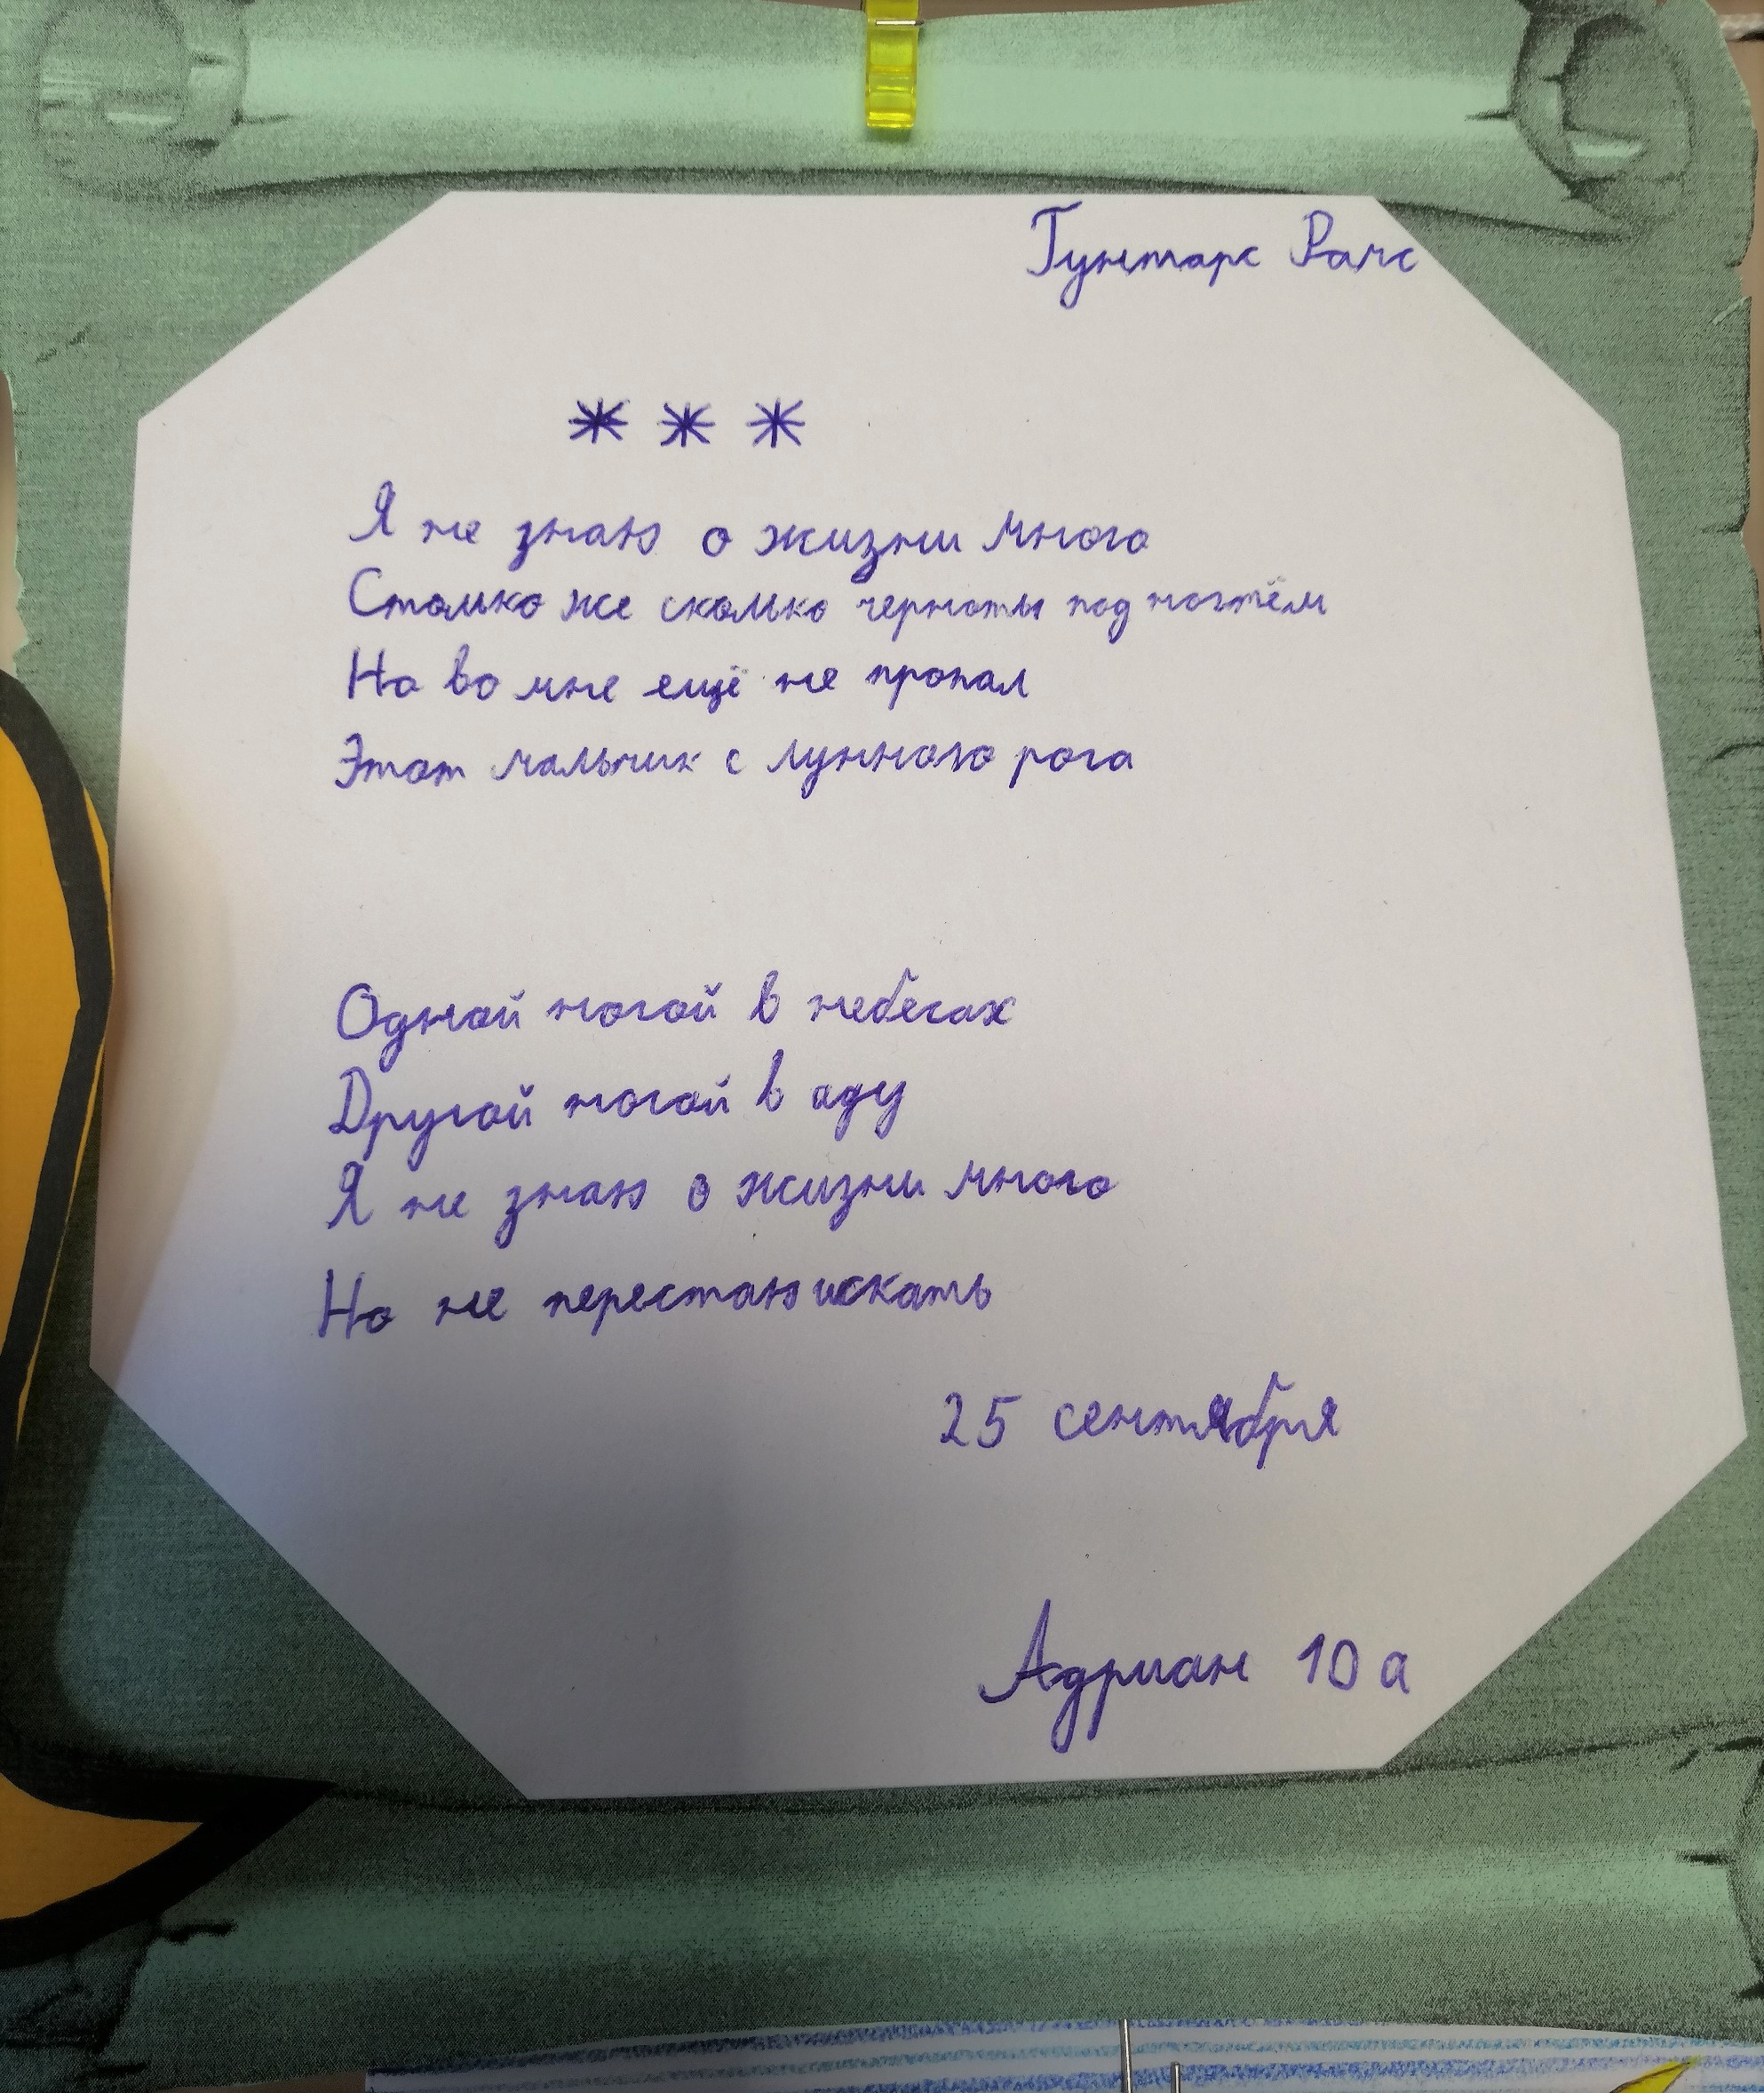 Гунтарс Рачс
* * *
Я не знаю о жизни много
Столько же сколько черноты под ногтём
Но во мне ещё не пропал
Этот мальчик с лунного рога
Одной ногой в небесах
Другой ногой в аду
Я не знаю о жизни много
Но не перестаю искать
25 сентября
Адриан 10 а